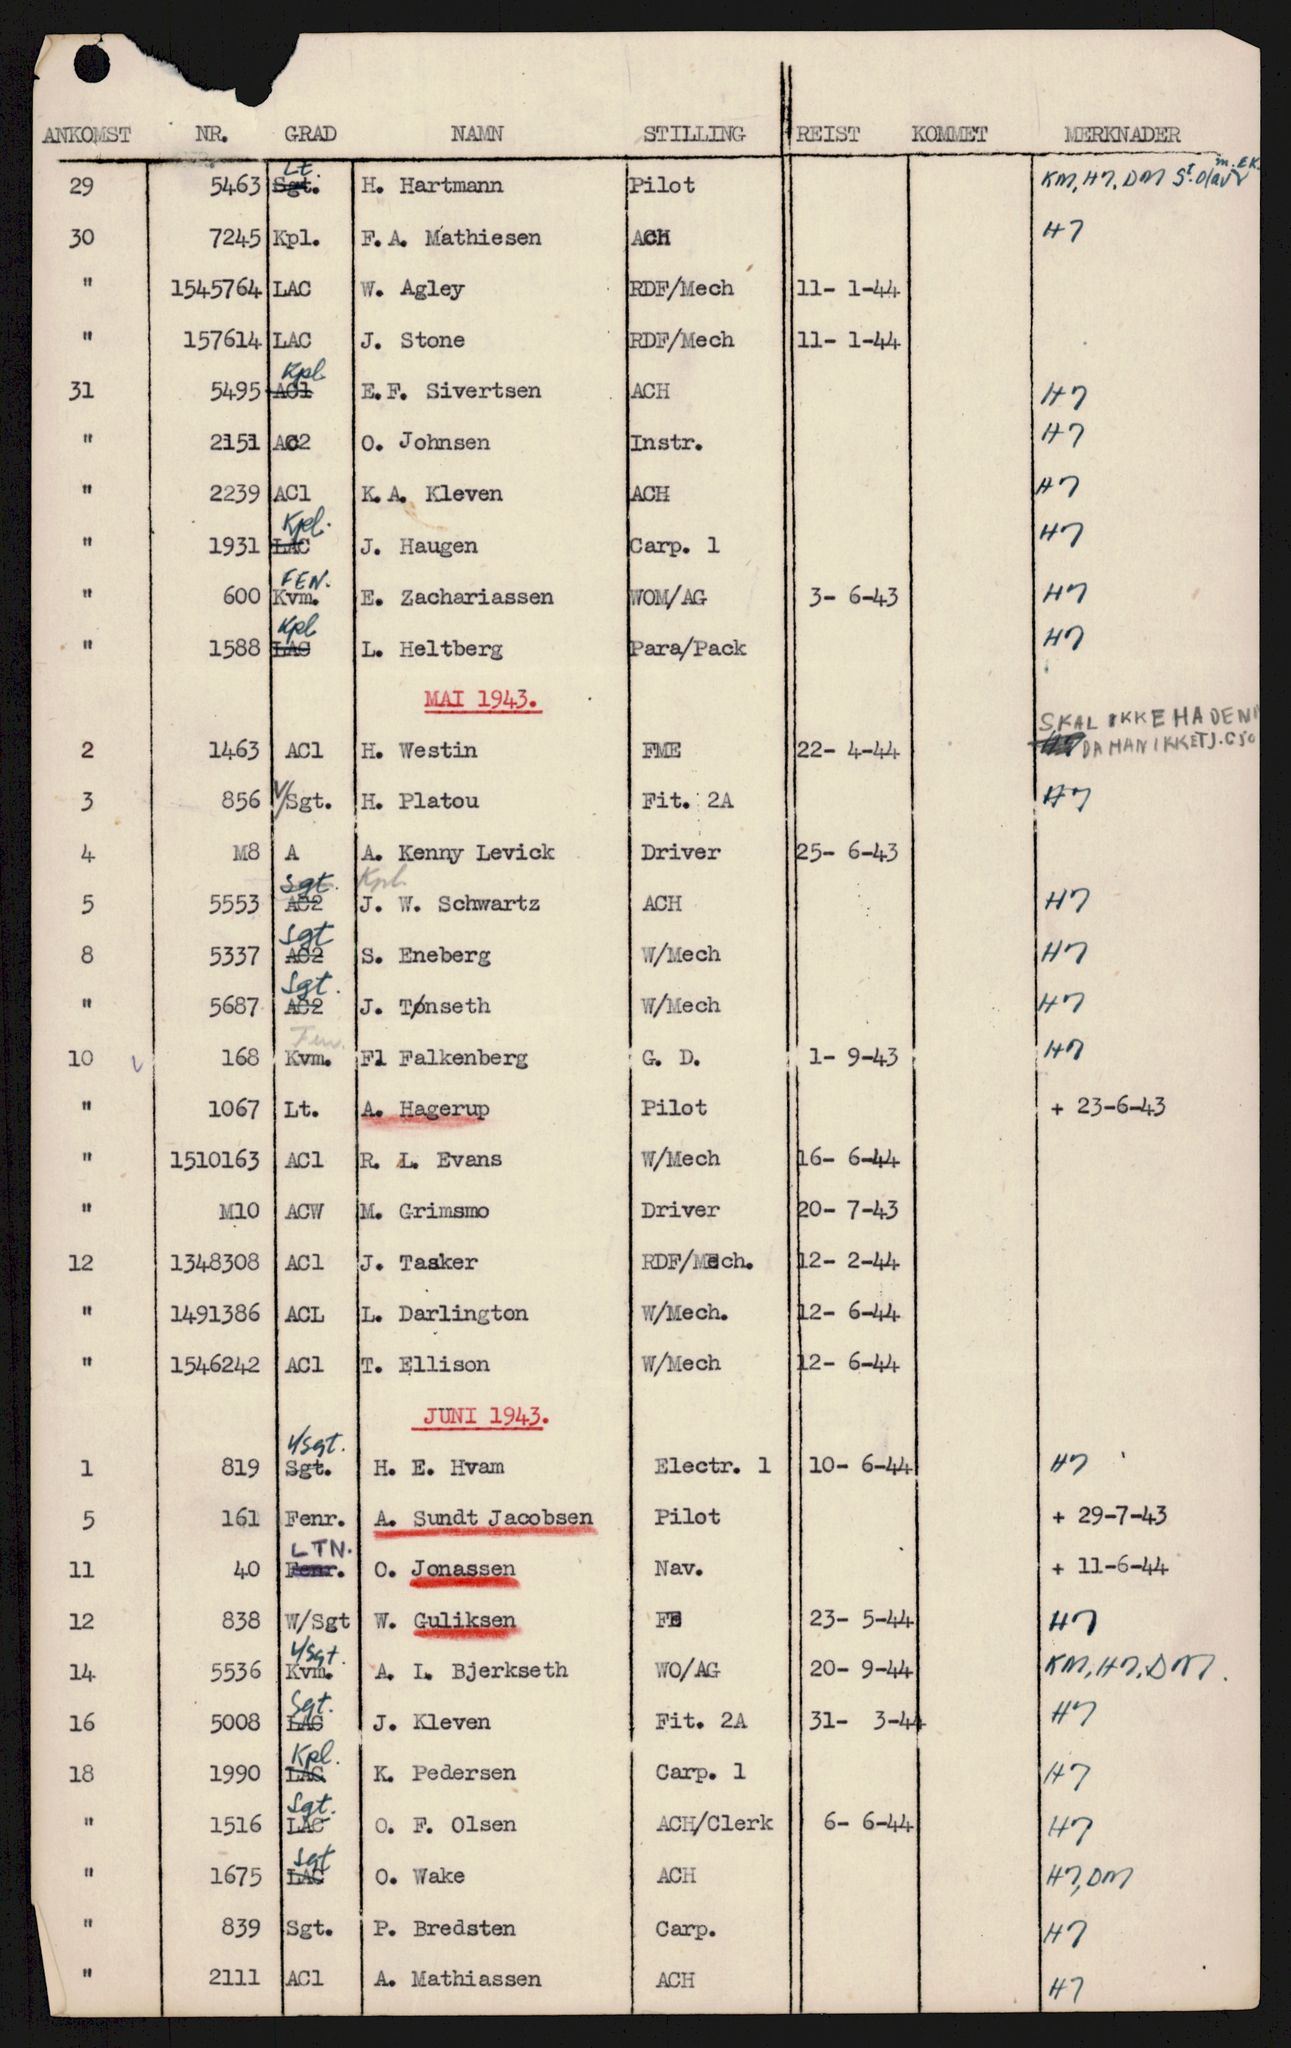 ANKOMST NR. GRAD NAMN STILLING REIST KOMMET MERKNADER
Lt. m. EK.
29 5463 Sgt. H. Hartmann Pilot KM, H7, DM St. Olav
30 7245 Kpl. F. A. Mathiesen ACH H7
" 1545764 LAC W. Agley RDF/Mech 11- 1-44
" 157614 LAC J. Stone RDF/Mech 11- 1-44
Kpl
31 5495 AC1 E. F. Sivertsen ACH H7
" 2151 AC2 O. Johnsen Instr. H7
" 2239 AC1 K. A. Kleven ACH H7
Kpl.
" 1931 LAC J. Haugen Carp. 1 H7
FEN.
" 600 Kvm. E. Zachariassen WOM/AG 3- 6-43 H7
Kpl
" 1588 LAC L. Heltberg Para/Pack H7
MAI 1943.
SKAL IKKE HA DEN
2 1463 AC1 H. Westin FME 22- 4-44 DA HAN IKKE TJ.
3 856 V/Sgt. H. Platou Fit. 2A H7
4 M8 A A. Kenny Levick Driver 25- 6-43
Sgt. Kpl.
5 5553 AC2 J. W. Schwartz ACH H7
Sgt
8 5337 AC2 S. Eneberg W/Mech H7
Sgt.
" 5687 AC2 J. Tønseth W/Mech H7
Fen.
10 168 Kvm. Fl Falkenberg G. D. 1- 9-43 H7
" 1067 Lt. A. Hagerup Pilot + 23-6-43
" 1510163 AC1 R. L. Evans W/Mech 16- 6-44
" M10 ACW M. Grimsmo Driver 20- 7-43
12 1348308 AC1 J. Tasker RDF/Mech. 12- 2-44
" 1491386 ACL L. Darlington W/Mech. 12- 6-44
" 1546242 AC1 T. Ellison W/Mech 12- 6-44
JUNI 1943.
V/Sgt.
1 819 Sgt. H. E. Hvam Electr. 1 10- 6-44 H7
5 161 Fenr. A. Sundt Jacobsen Pilot + 29-7-43
LTN.
11 40 Fenr. O. Jonassen Nav. + 11-6-44
12 838 W/Sgt W. Guliksen FE 23- 5-44 H7
V/Sgt.
14 5536 Kvm. A. I. Bjerkseth WO/AG 20- 9-44 KM, H7, DM.
Sgt.
16 5008 LAC J. Kleven Fit. 2A 31- 3-44 H7
Kpl.
18 1990 LAC K. Pedersen Carp. 1 H7
Sgt.
" 1516 LAC O. F. Olsen ACH/Clerk 6- 6-44 H7
Sgt
" 1675 LAC O. Wake ACH H7, DM
" 839 Sgt. P. Bredsten Carp. H7
" 2111 AC1 A. Mathiassen ACH H7